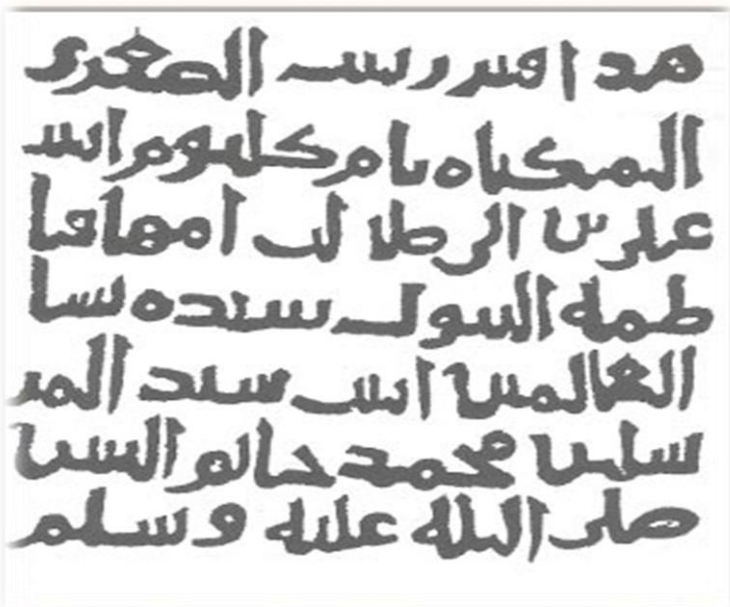 هدا قبر زينب الصغرى
المكناه بام كلثوم ابنت
على بن ابى طالب امها فا
طمه البتول سيده نسا
العالمين ابنت سيد المر
سلين محمد خاتم النبين
صلى الله عليه وسلم